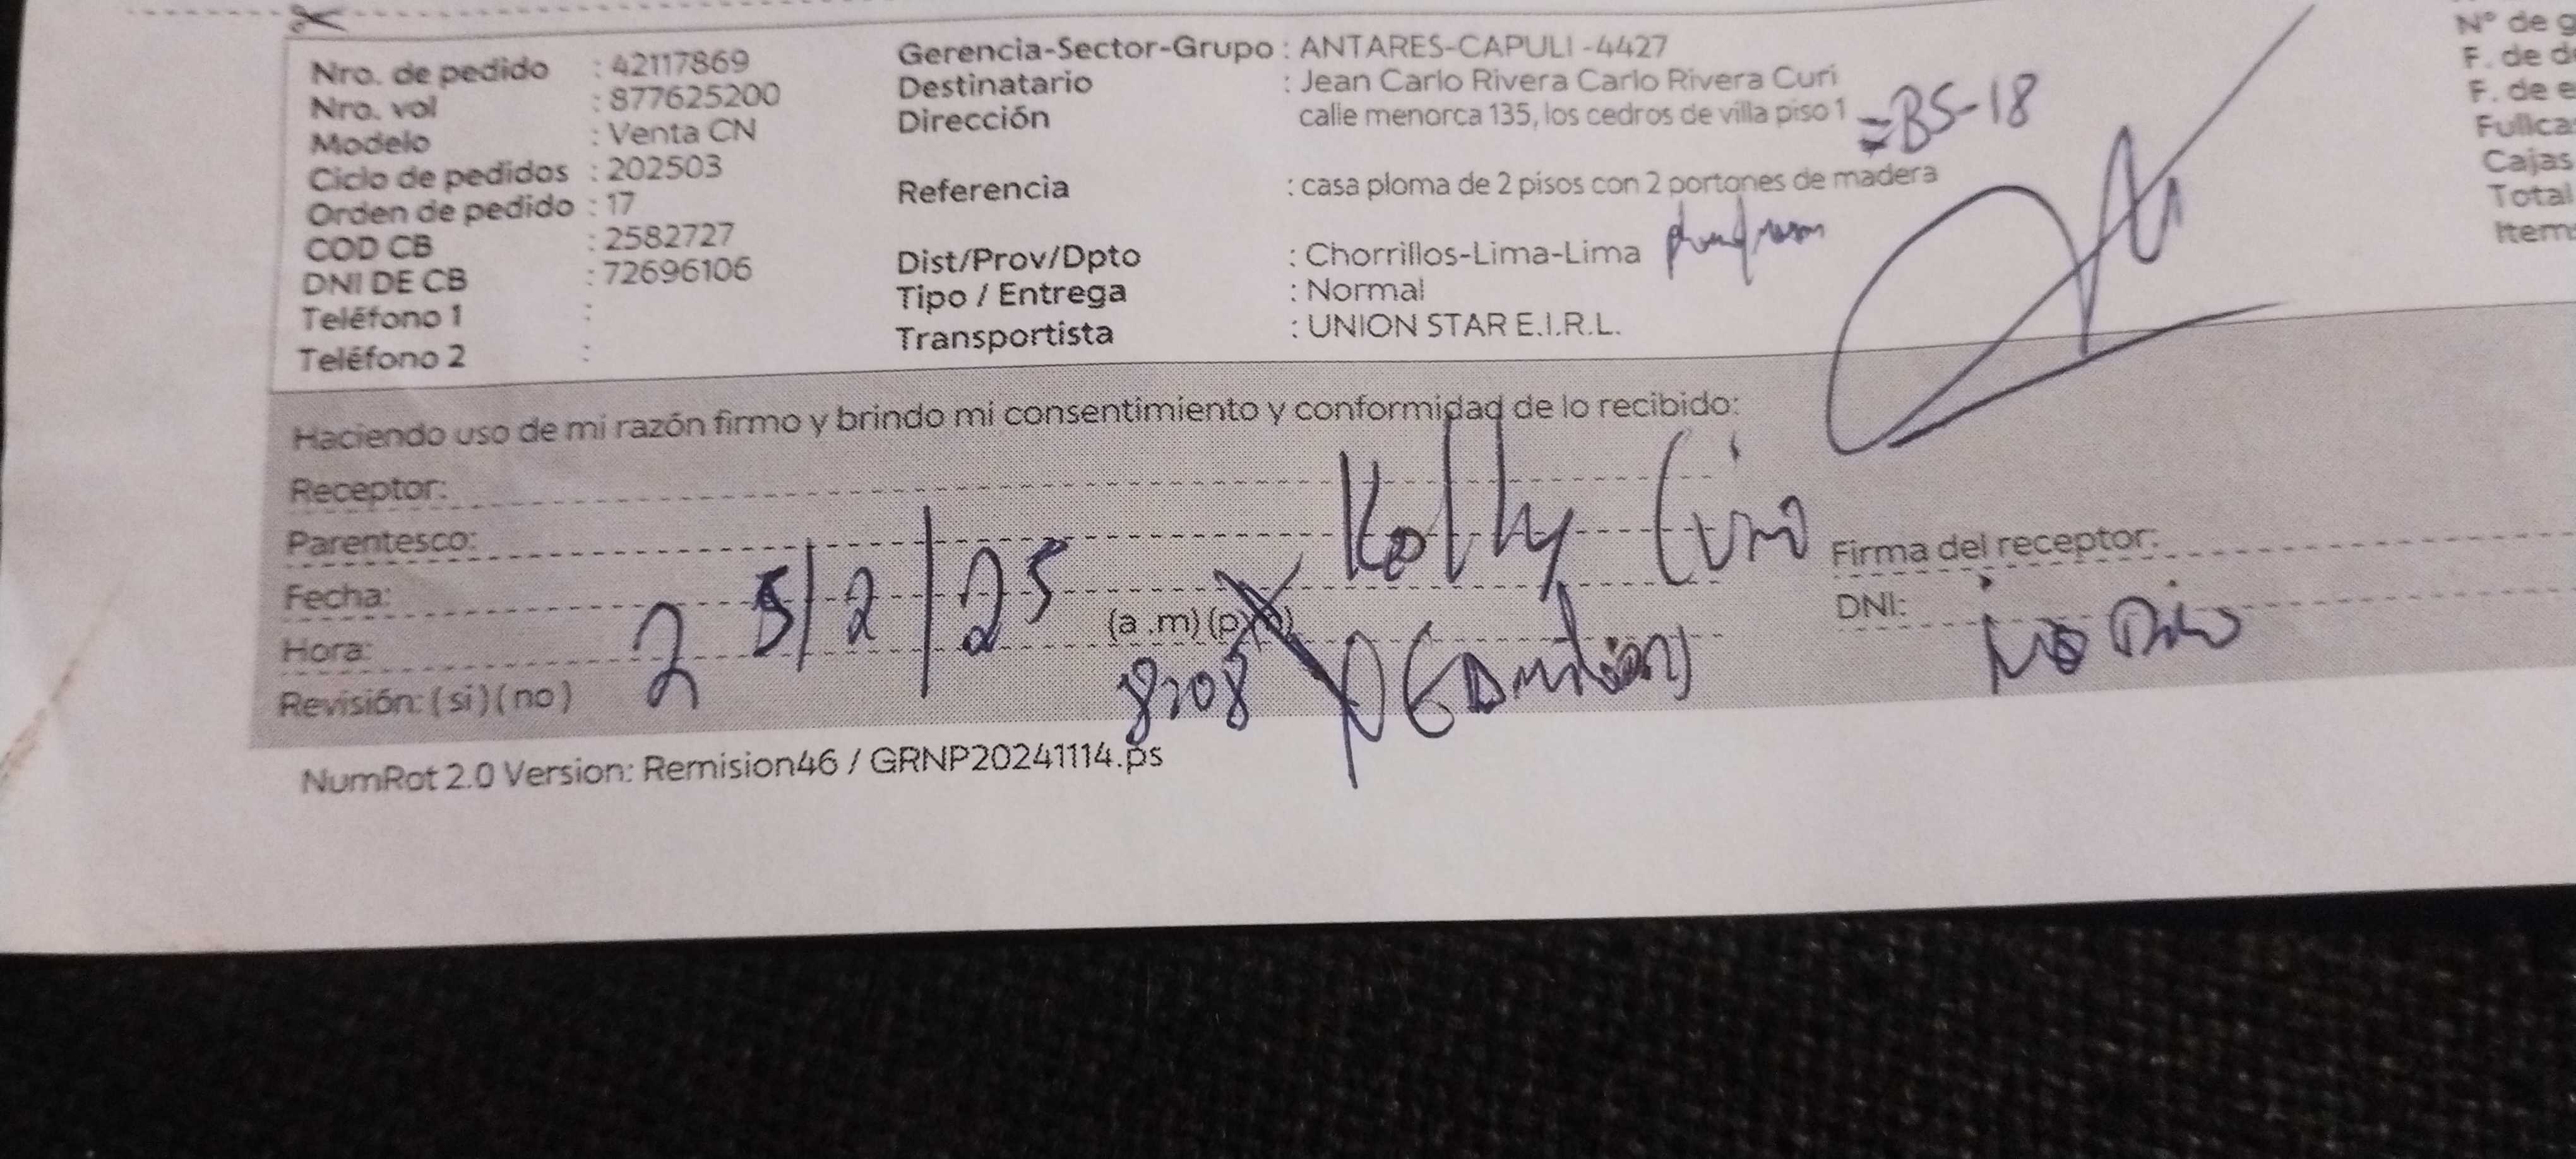 Nro. de pedido : 42117869
Nro. vol : 877625200
Modelo : Venta CN
Ciclo de pedidos : 202503
Orden de pedido : 17
COD CB : 2582727
DNI DE CB : 72696106
Teléfono 1 :
Teléfono 2 :
Gerencia-Sector-Grupo : ANTARES-CAPULI -4427
Destinatario : Jean Carlo Rivera Carlo Rivera Curi
Dirección calle menorca 135, los cedros de villa piso 1 =BS-18
Referencia : casa ploma de 2 pisos con 2 portones de madera
Dist/Prov/Dpto : Chorrillos-Lima-Lima
Tipo / Entrega : Normal
Transportista : UNION STAR E.I.R.L.
N° de g
F. de d
F. de e
Fullca
Cajas
Total
Item
Haciendo uso de mi razón firmo y brindo mi consentimiento y conformidad de lo recibido:
Receptor:
Parentesco:
Fecha: 5/2/25
Hora: (a .m) (p
Revisión: ( si ) ( no ) 2
Firma del receptor:
DNI:
NumRot 2.0 Version: Remision46 / GRNP20241114.ps